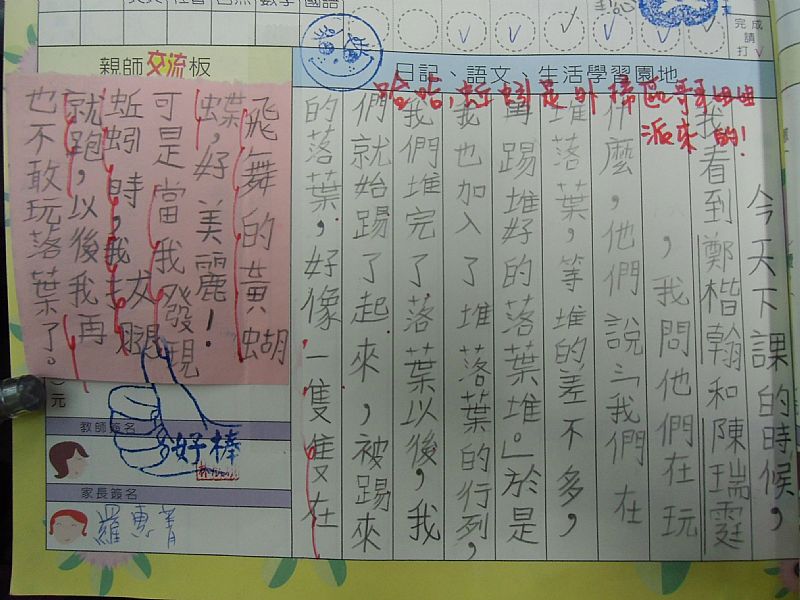 完成
請
打✓
親師交流板
日記、語文、生活學習園地
哈哈,蚯蚓是外掃區哥哥姐姐
派來的!
今天下課的時候,
我看到鄭楷翰和陳瑞霆
,我問他們在玩
什麼,他們說:「我們在
堆落葉,等堆的差不多,
再踢堆好的落葉堆。」於是
我也加入了堆落葉的行列,
我們堆完了落葉以後,我
們就始踢了起來,被踢來
的落葉,好像一隻隻在
飛舞的黃蝴
蝶,好美麗!
可是當我發現
蚯蚓時,我拔腿
就跑,以後我再
也不敢玩落葉了。
元
教師簽名
好棒
家長簽名
羅惠菁